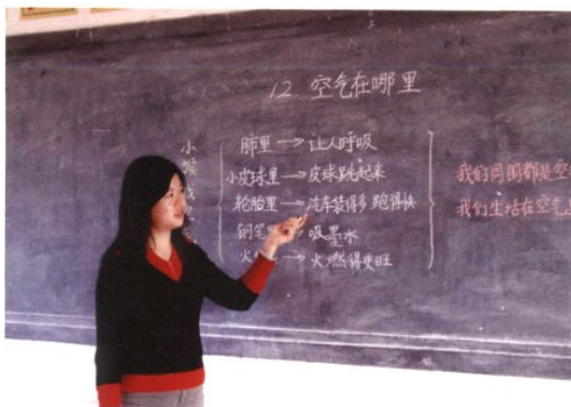 12 空气在哪里
小猴
肺里→让人呼吸
小皮球里→皮球跳起来
轮胎里→汽车装得多 跑得快
钢笔→吸墨水
火→火燃得更旺
我们周围都是空
我们生活在空气